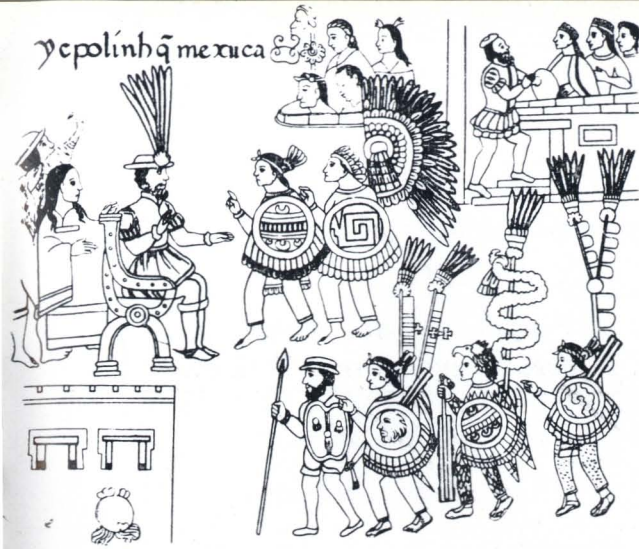 ycpolinh q̃ mexuca